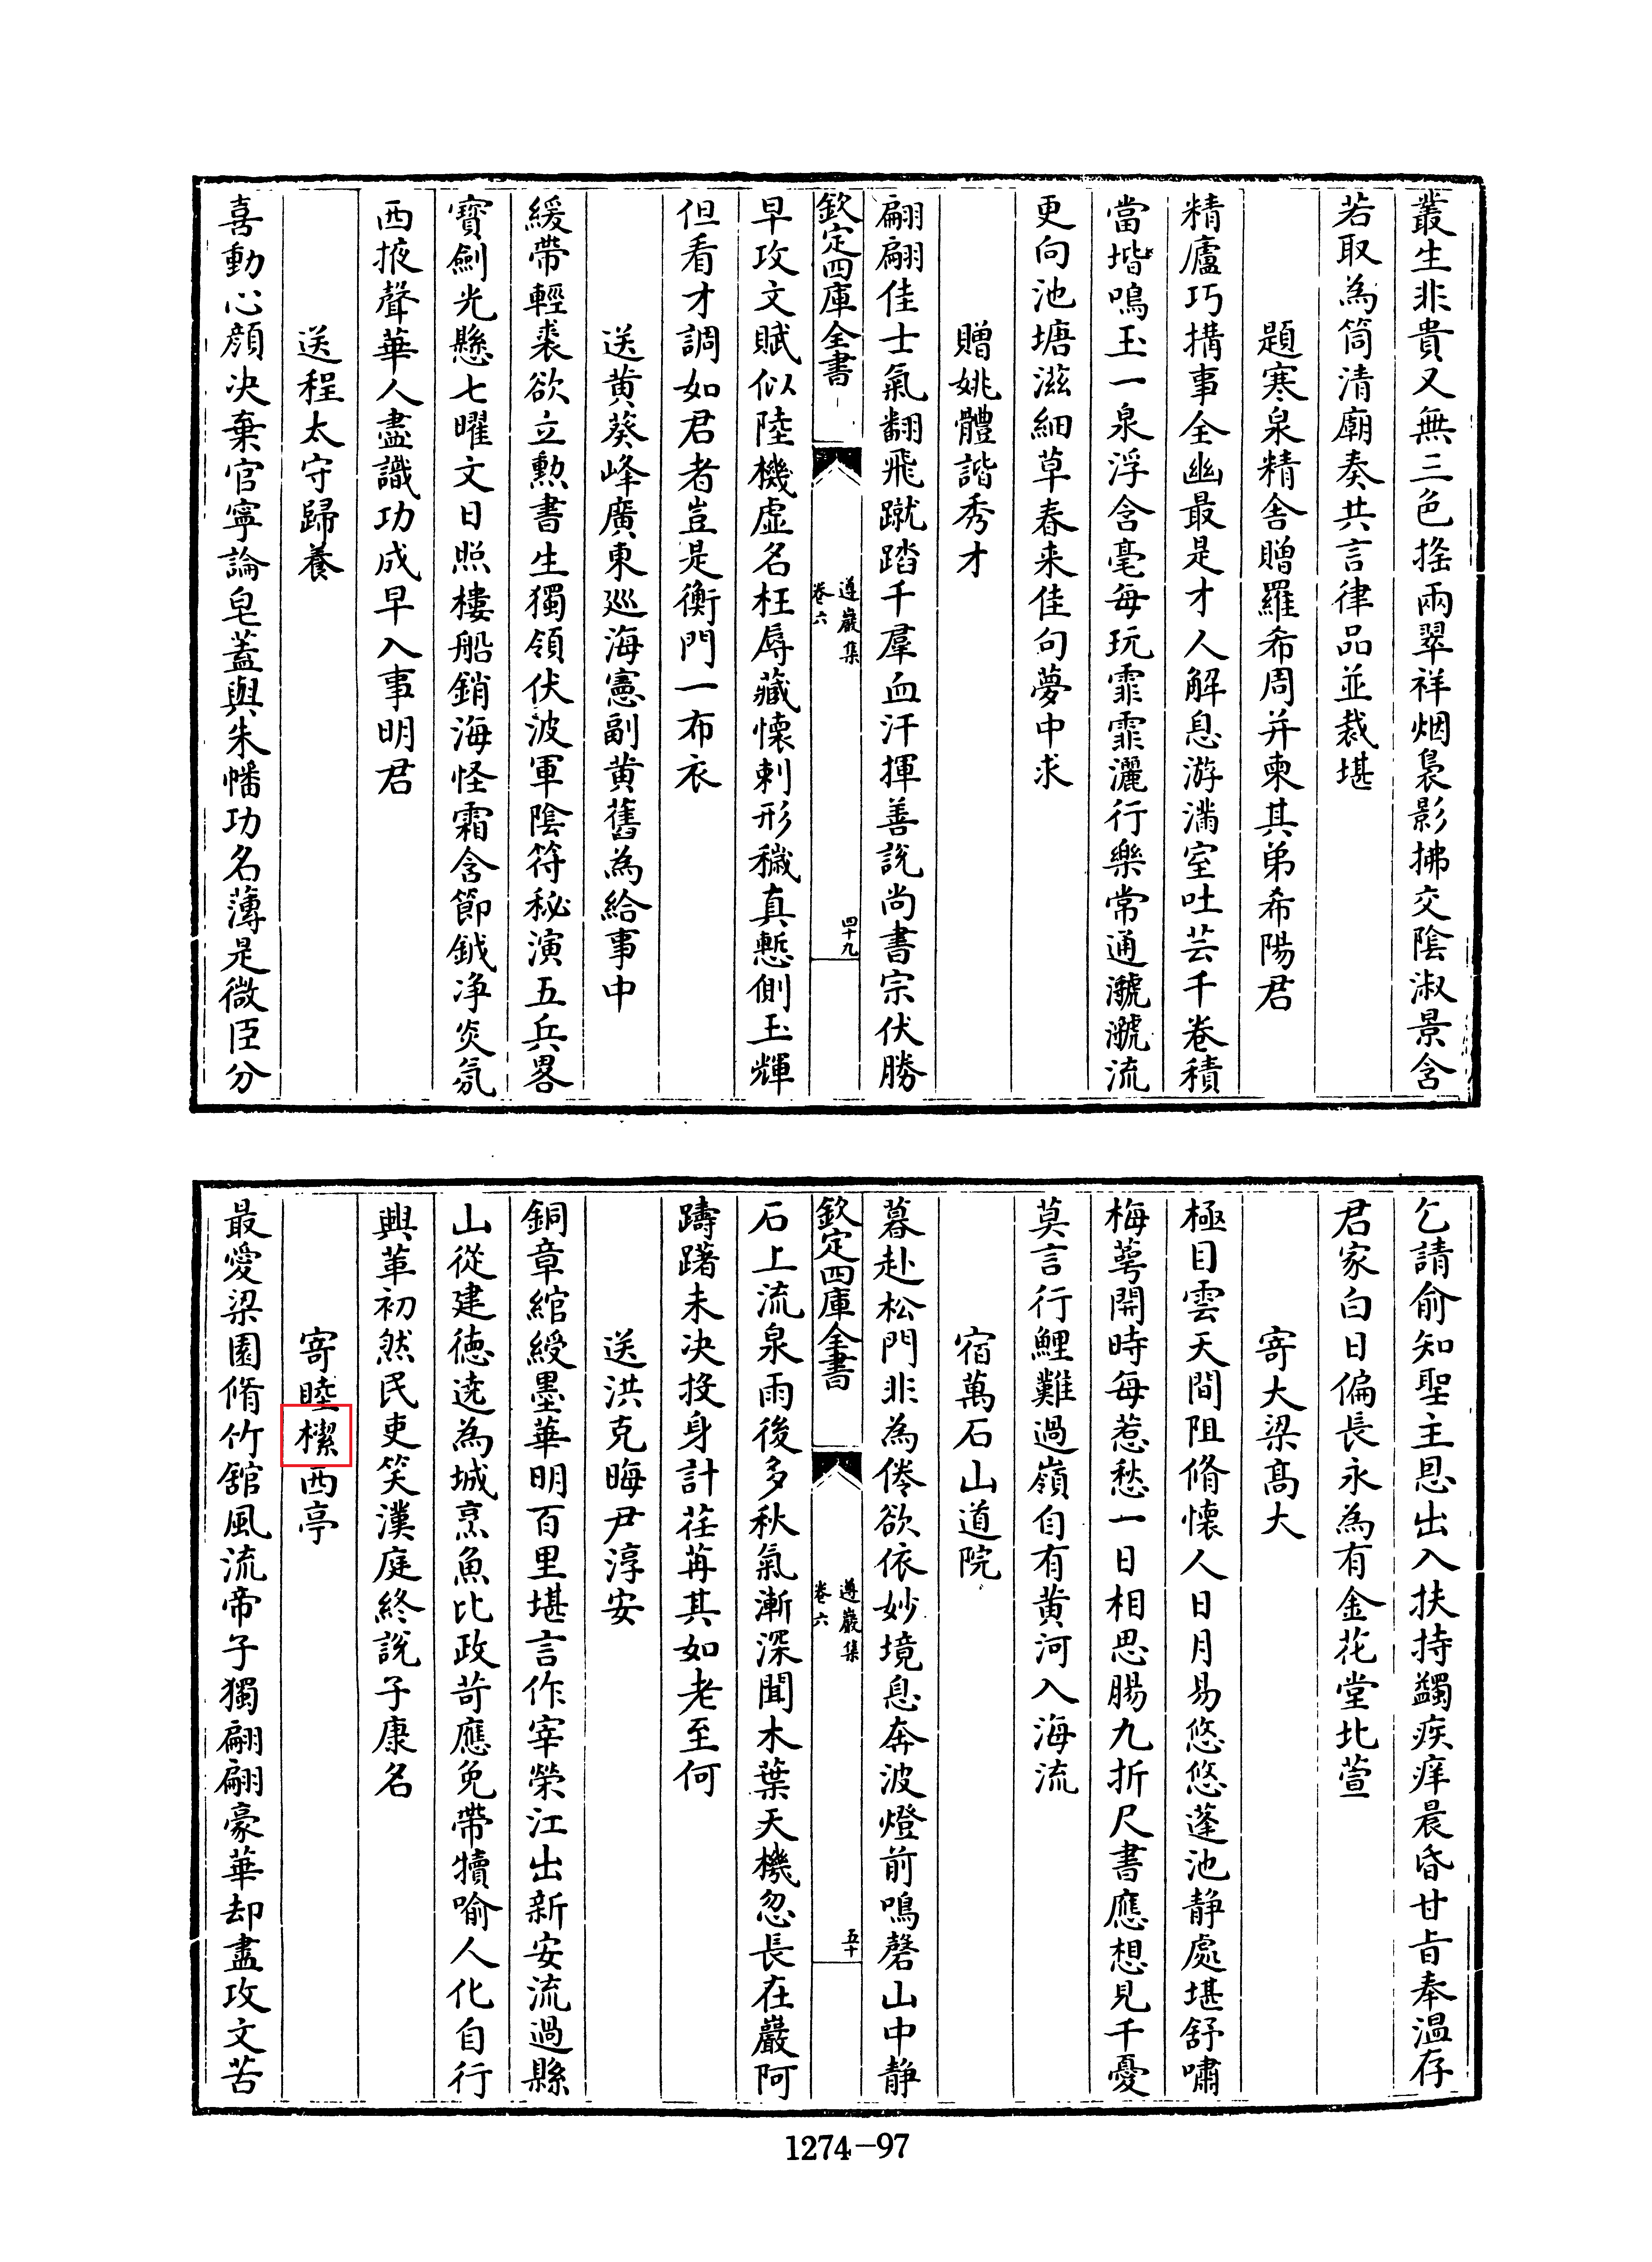 叢生非貴又無三色揺兩翠祥烟裊影拂交隂淑景含
若取為筒清廟奏共言律品並裁堪
題寒泉精舎贈羅希周并柬其弟希陽君
精廬巧搆事全幽最是才人解息游滿室吐芸千卷積
當堦鳴玉一泉浮含毫每玩霏霏灑行樂常通㶁㶁流
更向池塘滋細草春来佳句夢中求
贈姚體諧秀才
翩翩佳士氣翻飛蹴踏千羣血汗揮善説尚書宗伏勝
欽定四庫全書
遵巖集
卷六
四十九
早攻文賦似陸機虚名枉辱藏懐刺形穢真慙側玉輝
但看才調如君者豈是衡門一布衣
送黄葵峰廣東廵海憲副黄舊為給事中
緩帶輕裘欲立勲書生獨領伏波軍隂符秘演五兵畧
寶劍光懸七曜文日照樓船銷海怪霜含節鉞净炎氛
西掖聲華人盡識功成早入事明君
送程太守歸養
喜動心顔决棄官寧論皂蓋與朱幡功名薄是微臣分
乞請俞知聖主恩出入扶持蠲疾痒晨昏甘㫖奉温存
君家白日偏長永為有金花堂北萱
寄大梁髙大
極目雲天間阻脩懐人日月易悠悠蓬池静處堪舒嘯
梅萼開時每惹愁一日相思腸九折尺書應想見千憂
莫言行鯉難過嶺自有黄河入海流
宿萬石山道院
暮赴松門非為倦欲依妙境息奔波燈前鳴磬山中静
欽定四庫全書
遵巖集
卷六
五十
石上流泉雨後多秋氣漸深聞木葉天機忽長在巖阿
躊躇未决投身計荏苒其如老至何
送洪克晦尹淳安
銅章綰綬墨華明百里堪言作宰榮江出新安流過縣
山從建徳遶為城烹魚比政苛應免帶犢喻人化自行
興革初然民吏笑漢庭終說子康名
寄睦㮮西亭
最愛梁園脩竹舘風流帝子獨翩翩豪華却盡攻文苦
1274-97